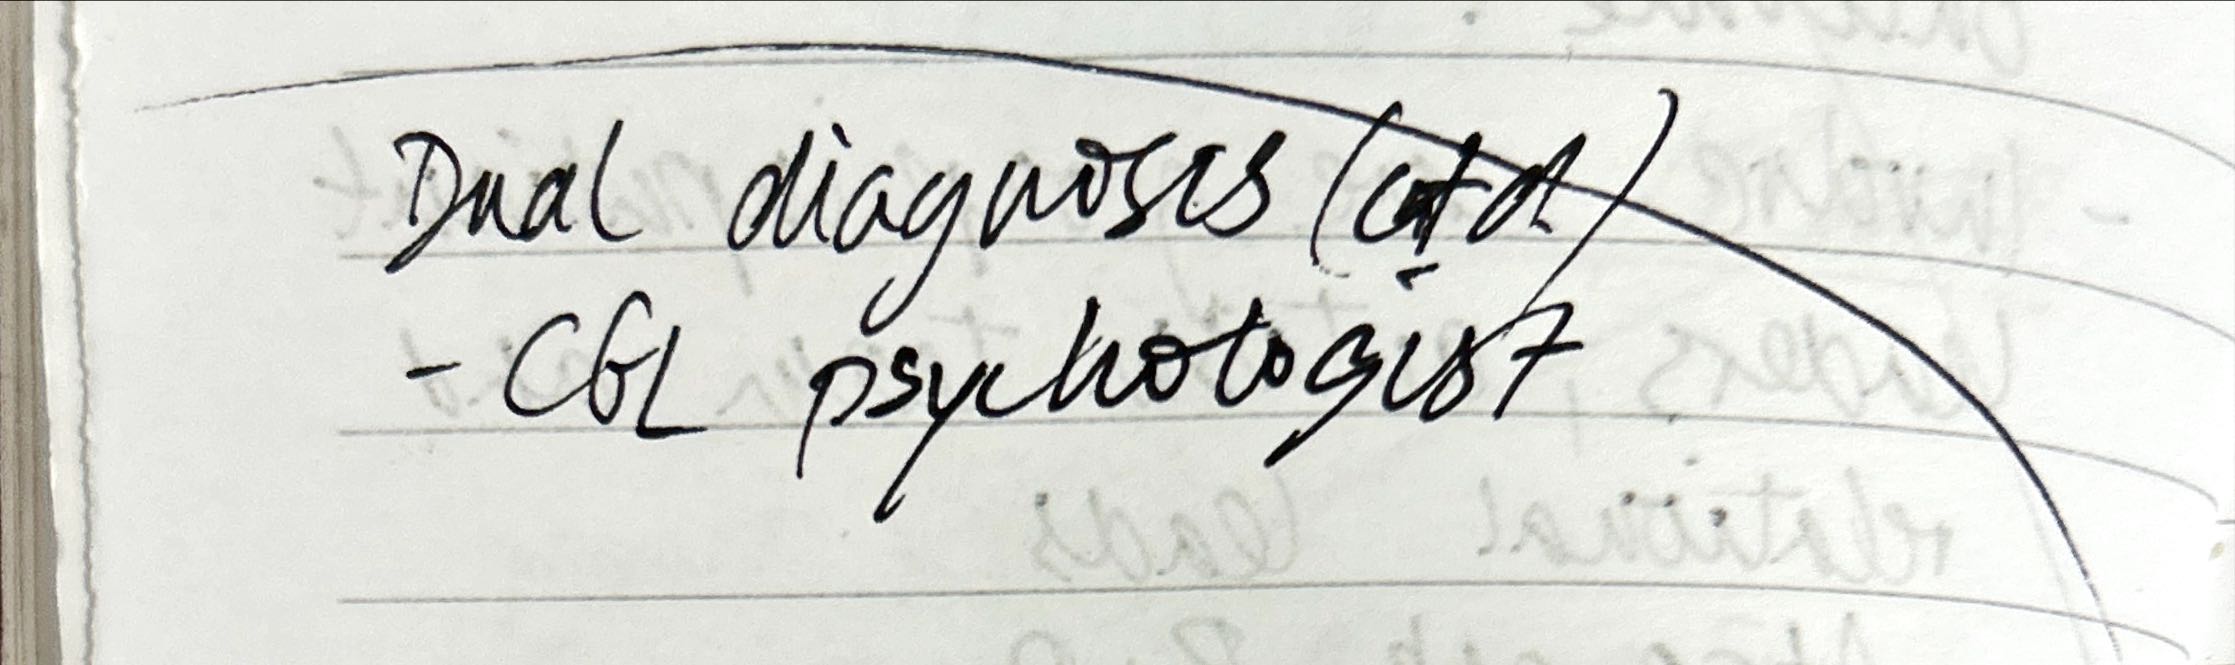 Dual diagnosis (ctd)
- CGL psychologist